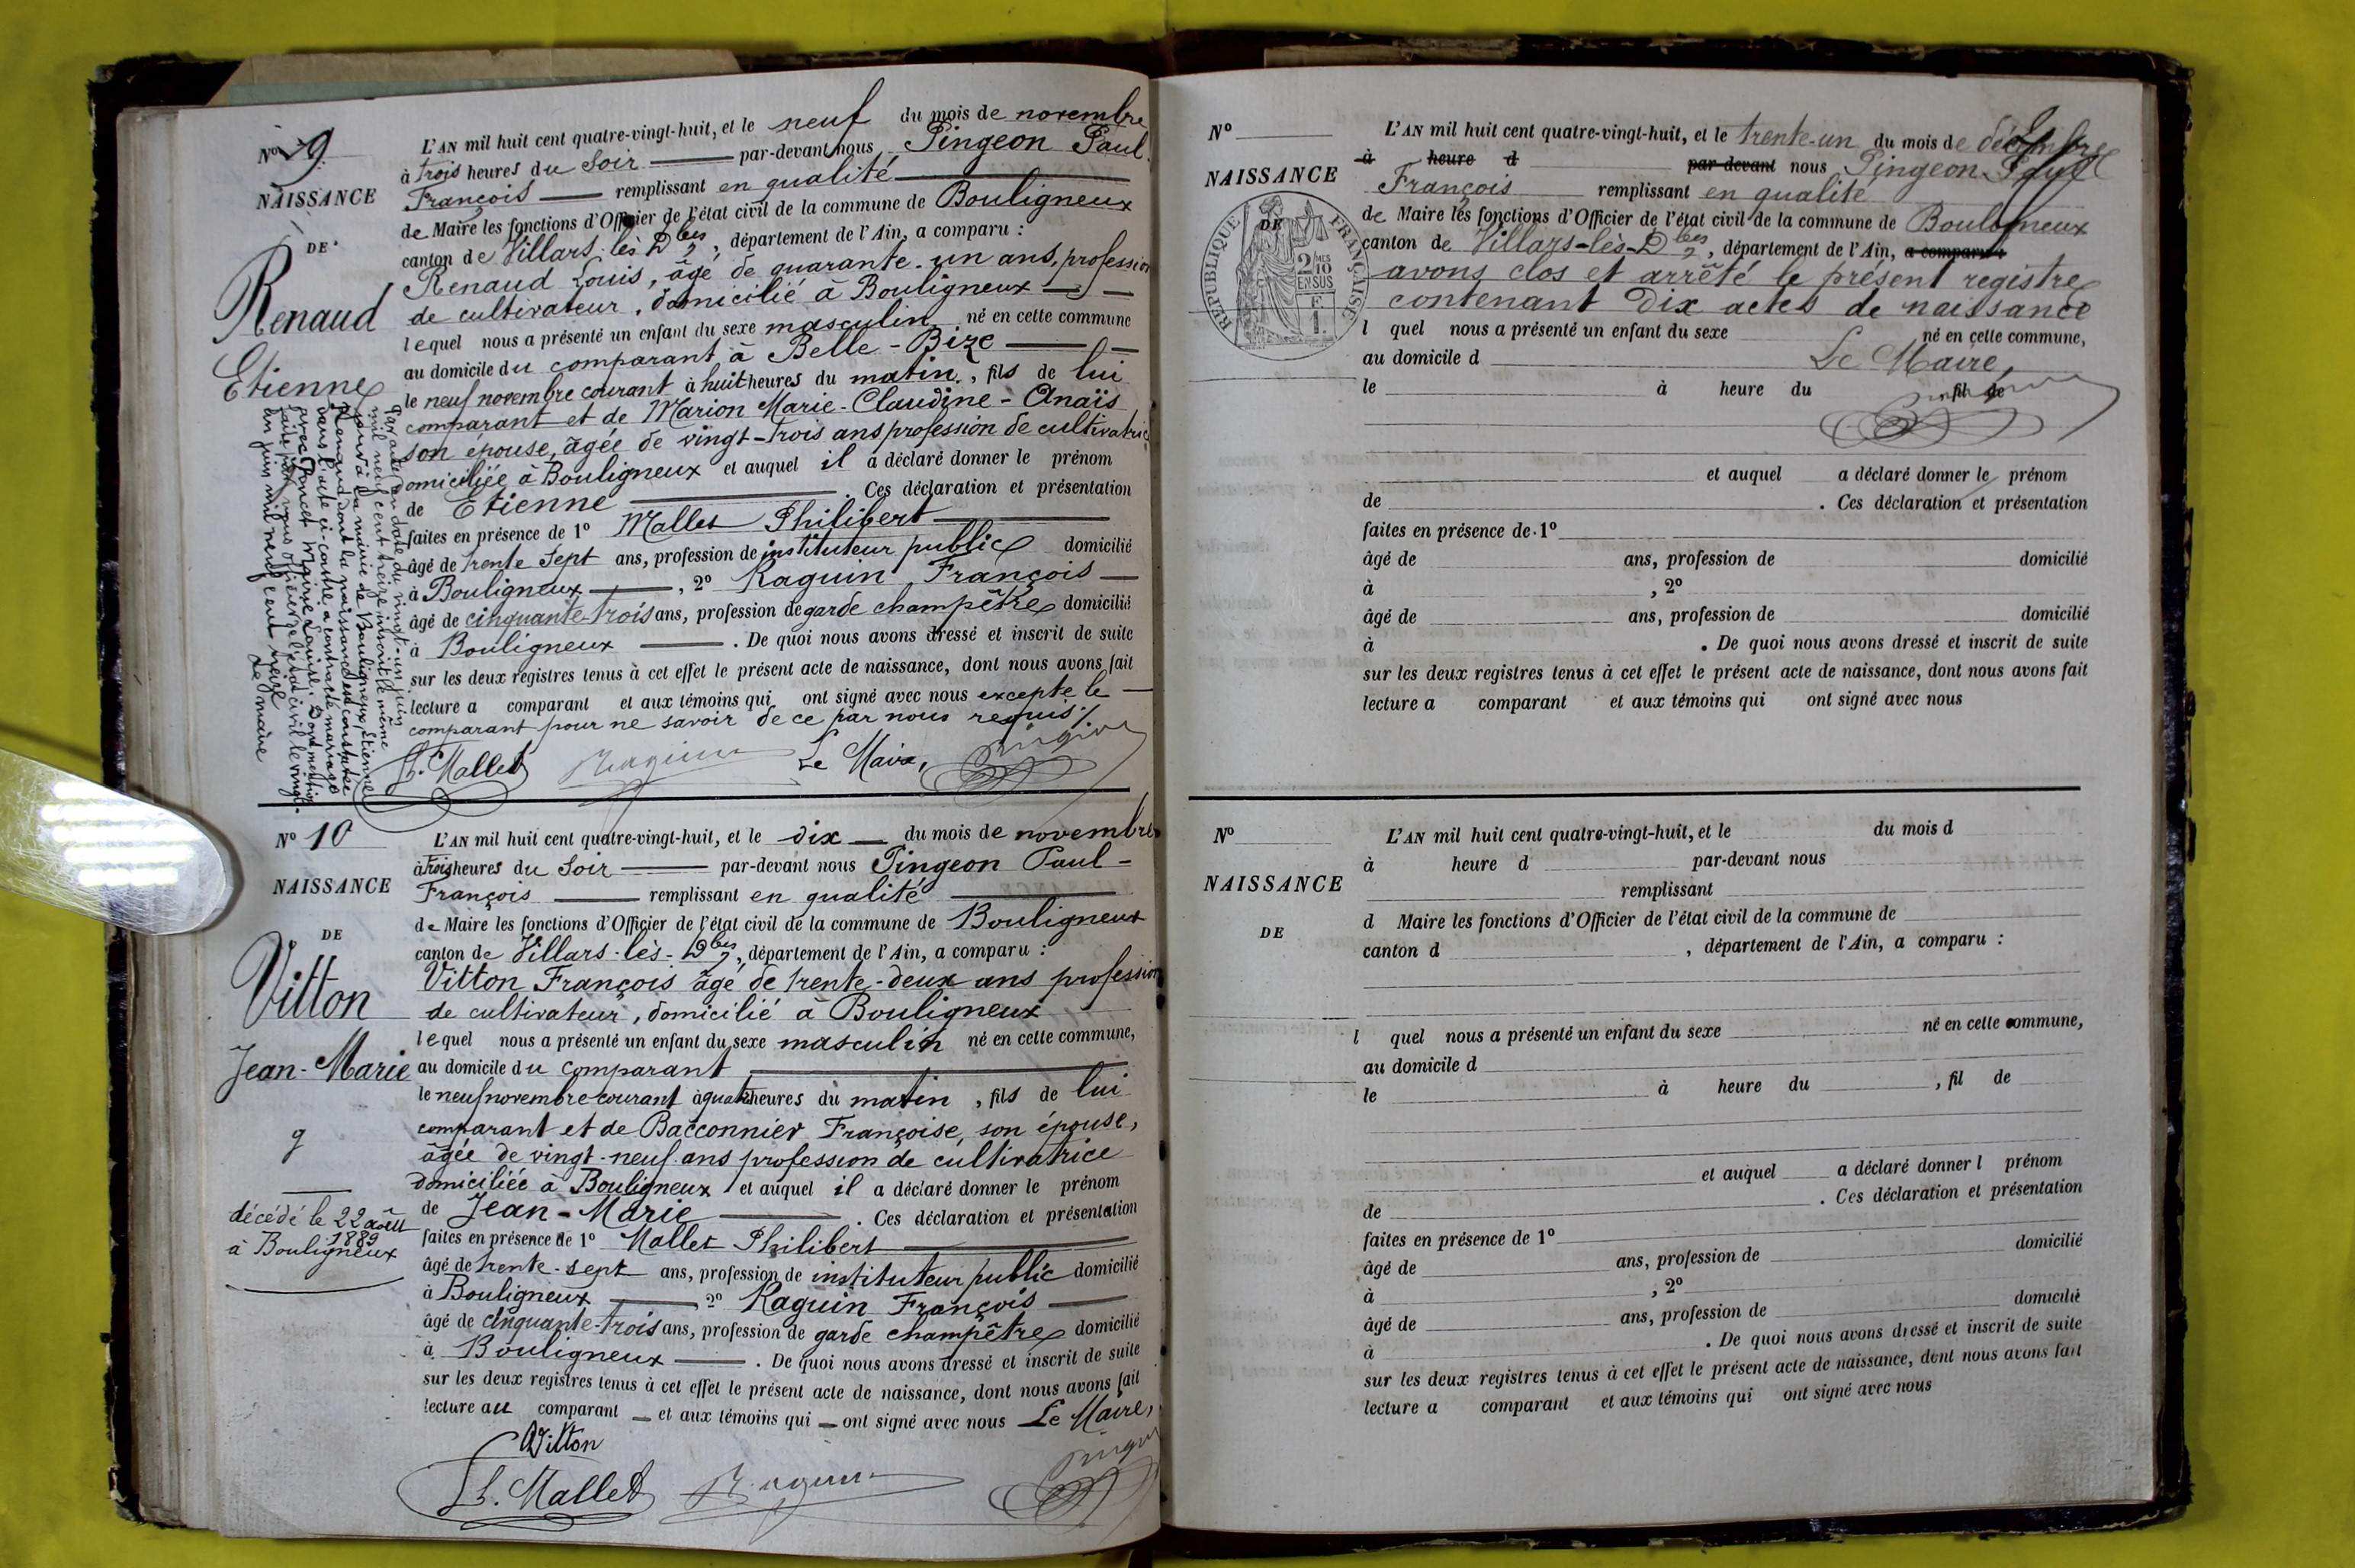 No 9
NAISSANCE
DE
Renaud
Etienne
L'AN mil huit cent quatre-vingt-huit, et le neuf du mois de novembre
à trois heures du soir par-devant nous Pingeon Paul
François remplissant en qualité
de Maire les fonctions d'Officier de l'état civil de la commune de Bouligneux
canton de Villars-lès-Dbes, département de l'Ain, a comparu :
Renaud Louis, âgé de quarante-un ans, profession
de cultivateur, domicilié à Bouligneux
lequel nous a présenté un enfant du sexe masculin né en cette commune
au domicile du comparant à Belle-Bize
le neuf novembre courant à huit heures du matin, fils de lui
comparant et de Marion Marie-Claudine-Anaïs
son épouse, âgée de vingt-trois ans profession de cultivatrice
domiciliée à Bouligneux et auquel il a déclaré donner le prénom
de Etienne . Ces déclaration et présentation
faites en présence de 1º Mallet Philibert
âgé de trente sept ans, profession de instituteur public domicilié
à Bouligneux , 2º Raguin François
âgé de cinquante-trois ans, profession de garde champêtre domicilié
à Bouligneux . De quoi nous avons dressé et inscrit de suite
sur les deux registres tenus à cet effet le présent acte de naissance, dont nous avons fait
lecture a comparant et aux témoins qui ont signé avec nous excepté le
comparant pour ne savoir de ce par nous requis ./.
Ph. Mallet Raguin Le Maire, Pingeon
Par acte en date du vingt-un juin
mil neuf cent treize inscrit le même
jour à la mairie de Bouligneux, Etienne
Renaud dont la naissance est constatée
dans l'acte ci-contre a contracté mariage
avec Poncet Marie Louise. Dont mention
faite par nous officier de l'état civil le vingt-
un juin mil neuf cent treize
Le maire
No 10
NAISSANCE
DE
Vitton
Jean-Marie
g
décédé le 22 août
1889
à Bouligneux
L'AN mil huit cent quatre-vingt-huit, et le dix du mois de novembre
à trois heures du soir par-devant nous Pingeon Paul-
François remplissant en qualité
de Maire les fonctions d'Officier de l'état civil de la commune de Bouligneux
canton de Villars-lès-Dbes, département de l'Ain, a comparu :
Vitton François âgé de trente-deux ans profession
de cultivateur, domicilié à Bouligneux
lequel nous a présenté un enfant du sexe masculin né en cette commune,
au domicile du comparant
le neuf novembre courant à quatre heures du matin, fils de lui
comparant et de Bacconnier Françoise, son épouse,
âgée de vingt-neuf ans profession de cultivatrice
domiciliée à Bouligneux et auquel il a déclaré donner le prénom
de Jean-Marie . Ces déclaration et présentation
faites en présence de 1º Mallet Philibert
âgé de trente-sept ans, profession de instituteur public domicilié
à Bouligneux 2º Raguin François
âgé de cinquante-trois ans, profession de garde champêtre domicilié
à Bouligneux . De quoi nous avons dressé et inscrit de suite
sur les deux registres tenus à cet effet le présent acte de naissance, dont nous avons fait
lecture au comparant et aux témoins qui ont signé avec nous Le Maire,
Vitton
Ph. Mallet Raguin Pingeon
No
NAISSANCE
DE
RÉPUBLIQUE FRANÇAISE
2 MES
10
EN SUS
F
1.
L'AN mil huit cent quatre-vingt-huit, et le trente-un du mois de décembre
à heure d par-devant nous Pingeon Paul
François remplissant en qualité
de Maire les fonctions d'Officier de l'état civil de la commune de Bouligneux
canton de Villars-lès-Dbes, département de l'Ain, a comparu :
avons clos et arrêté le présent registre
contenant dix actes de naissance
l quel nous a présenté un enfant du sexe né en cette commune,
au domicile d Le Maire,
le à heure du fil de
Pingeon
et auquel a déclaré donner le prénom
de . Ces déclaration et présentation
faites en présence de 1º
âgé de ans, profession de domicilié
à , 2º
âgé de ans, profession de domicilié
à . De quoi nous avons dressé et inscrit de suite
sur les deux registres tenus à cet effet le présent acte de naissance, dont nous avons fait
lecture a comparant et aux témoins qui ont signé avec nous
No
NAISSANCE
DE
L'AN mil huit cent quatre-vingt-huit, et le du mois d
à heure d par-devant nous
remplissant
d Maire les fonctions d'Officier de l'état civil de la commune de
canton d , département de l'Ain, a comparu :
l quel nous a présenté un enfant du sexe né en cette commune,
au domicile d
le à heure du , fil de
et auquel a déclaré donner l prénom
de . Ces déclaration et présentation
faites en présence de 1º
âgé de ans, profession de domicilié
à , 2º
âgé de ans, profession de domicilié
à . De quoi nous avons dressé et inscrit de suite
sur les deux registres tenus à cet effet le présent acte de naissance, dont nous avons fait
lecture a comparant et aux témoins qui ont signé avec nous